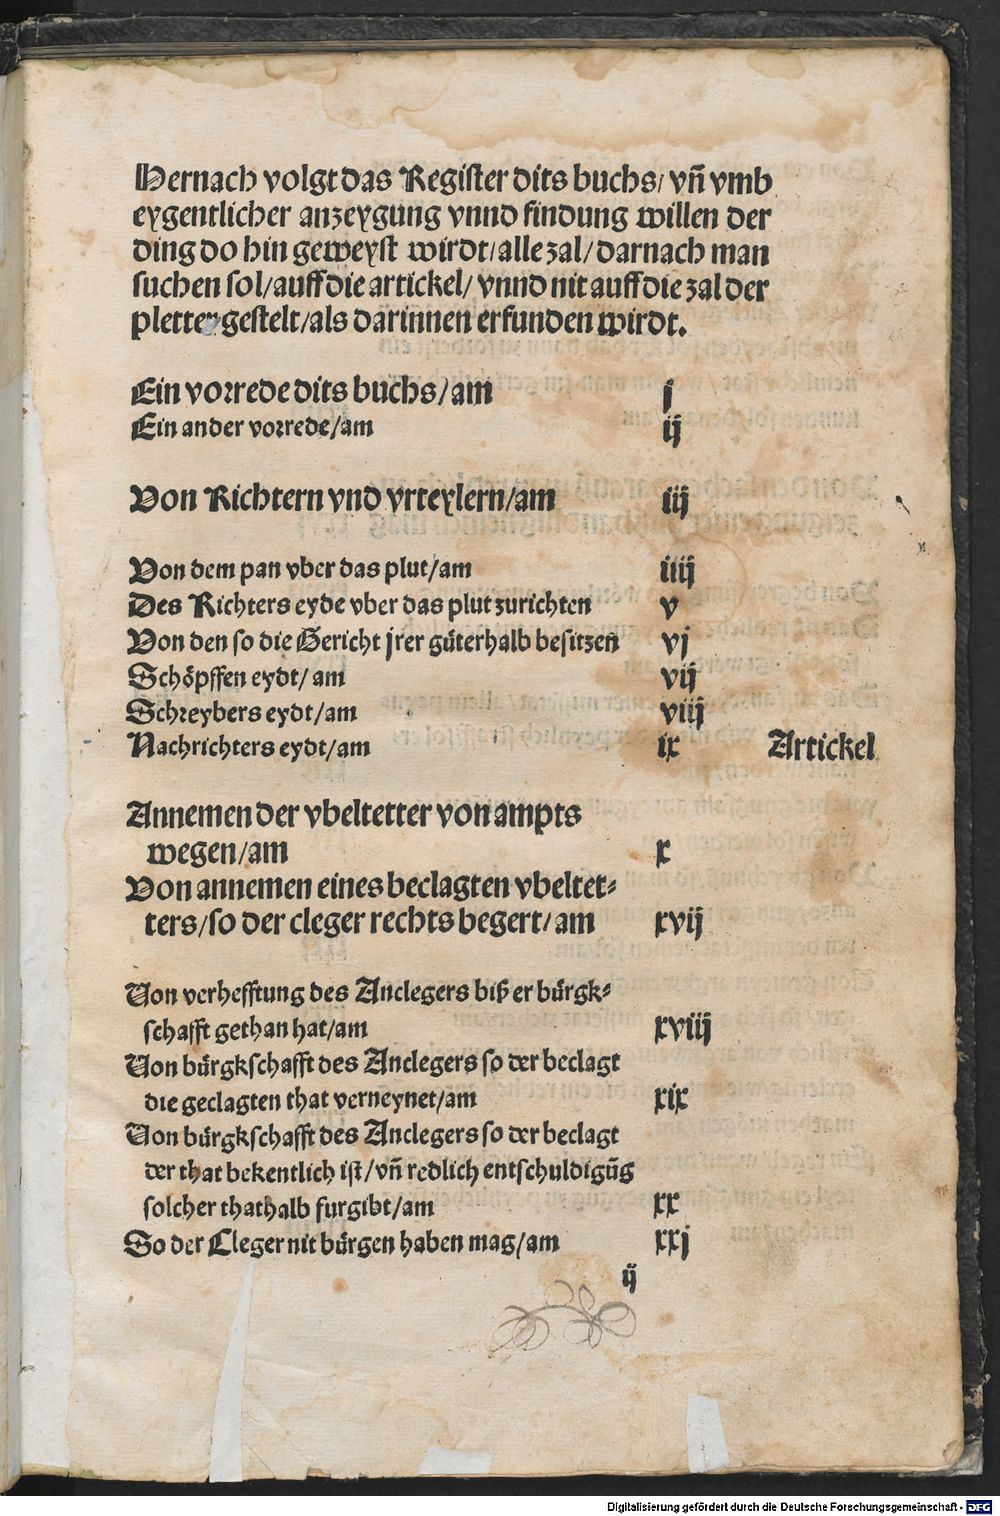 Hernach volgt das Register dits buchs/ vñ vmb
eygentlicher anzeygung vnnd findung willen der
ding do hin geweyst wirdt/ alle zal/ darnach man
suchen sol/ auff die artickel/ vnnd nit auff die zal der
pletter gestelt/ als darinnen erfunden wirdt.
Ein vorrede dits buchs/ am j
Ein ander vorrede/ am ij
Von Richtern vnd vrteylern/ am iij
Von dem pan vber das plut/ am iiij
Des Richters eyde vber das plut zurichten v
Von den so die Gericht jrer güterhalb besitzen vj
Schöpffen eydt/ am vij
Schreybers eydt/ am viij
Nachrichters eydt/ am ix Artickel
Annemen der vbeltetter von ampts
wegen/ am x
Von annemen eines beclagten vbeltet-
ters/ so der cleger rechts begert/ am xvij
Von verhefftung des Anclegers biß er bürgk-
schafft gethan hat/ am xviij
Von bürgkschafft des Anclegers so der beclagt
die geclagten that verneynet/ am xix
Von bürgkschafft des Anclegers so der beclagt
der that bekentlich ist/ vñ redlich entschuldigūg
solcher thathalb furgibt/ am xx
So der Cleger nit bürgen haben mag/ am xxj
ij
Digitalisierung gefördert durch die Deutsche Forschungsgemeinschaft - DFG